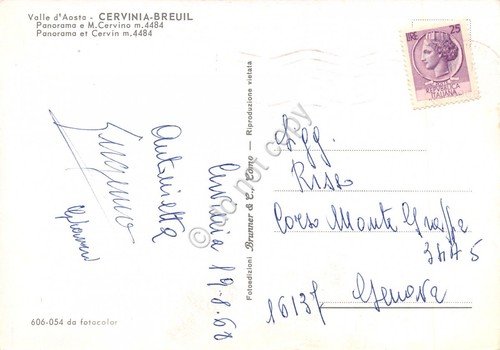 Valle d'Aosta - CERVINIA-BREUIL
Panorama e M.Cervino m.4484
Panorama et Cervin m.4484
Cervinia 19.8.68
Antonietta
606-054 da fotocolor
Fotoedizioni Brunner & C., Como - Riproduzione vietata
do not copy
LIRE 25
REPUBBLICA
ITALIANA
Sigg.
Risso
Corso Monte Grappa
16137 Genova